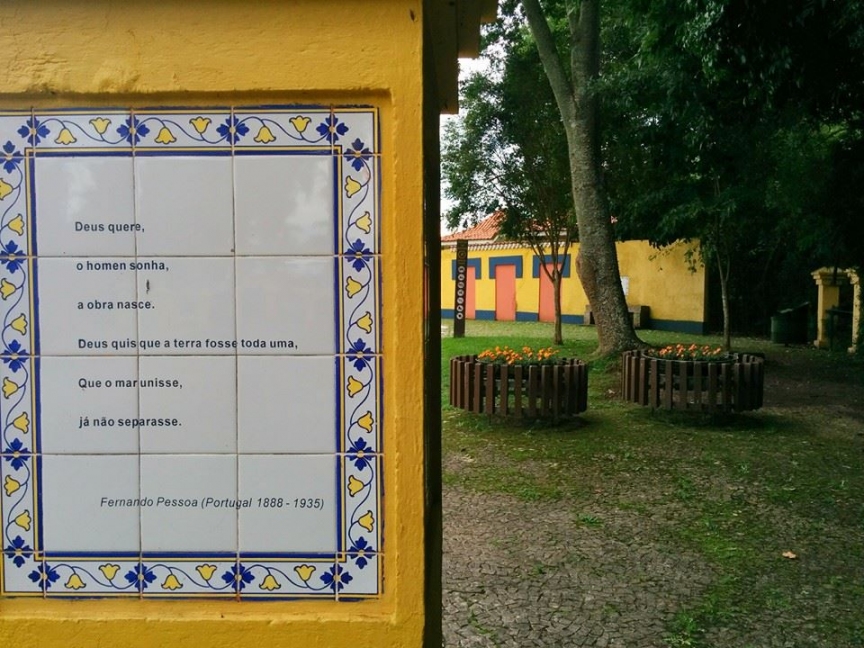 Deus quere,
o homen sonha,
a obra nasce.
Deus quis que a terra fosse toda uma,
Que o mar unisse,
já não separasse.
Fernando Pessoa (Portugal 1888 - 1935)